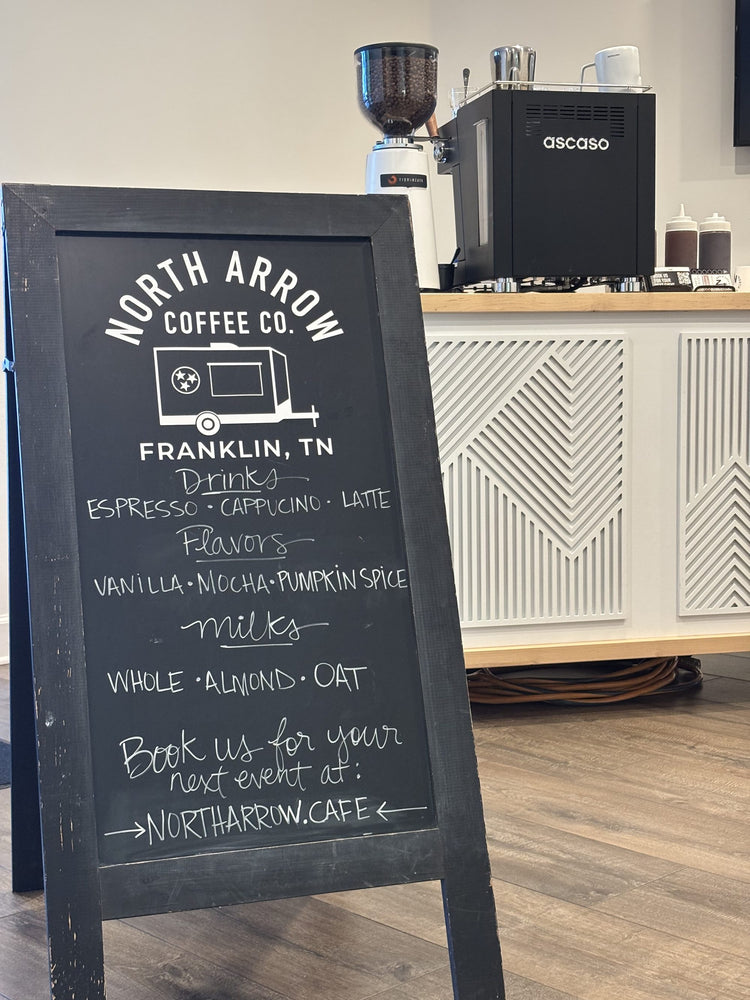 NORTH ARROW
COFFEE CO.
FRANKLIN, TN
Drinks
ESPRESSO · CAPPUCINO · LATTE
Flavors
VANILLA · MOCHA · PUMPKIN SPICE
Milks
WHOLE · ALMOND · OAT
Book us for your
next event at:
→NORTHARROW.CAFE←
ascaso